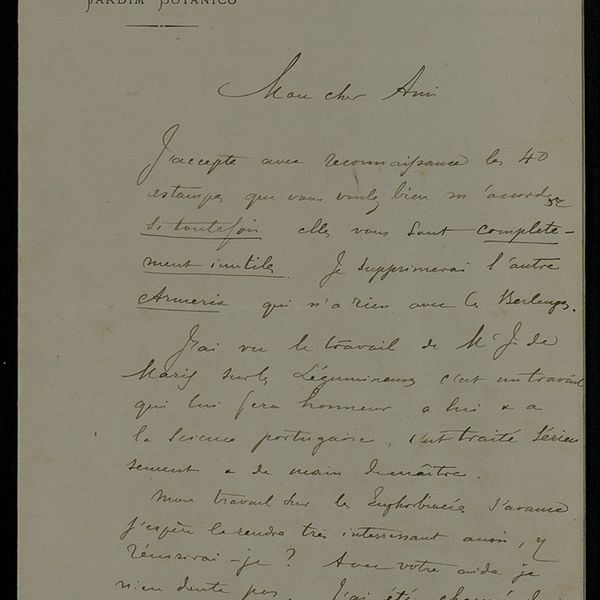 JARDIM BOTANICO
Mon cher Ami
J'accepte avec reconnaissance les 40
estampes que vous voulez bien m'accorder
si toutefois elles vous sont complete-
ment inutiles. Je supprimerai l'autre
Armeria qui n'a rien avec les Berlengas.
J'ai vu le travail de Mr J. de
Mariz sur les Légumineuses c'est un travail
qui lui fera honneur a lui & a
la science portugaise, c'est traité sérieu
sement & de main de maître.
Mon travail sur les Euphorbiacées s'avance
j'espère le rendre très interressant aussi, y
réussirai-je? Avec votre aide je
n'en doute pas. J'ai été charmé